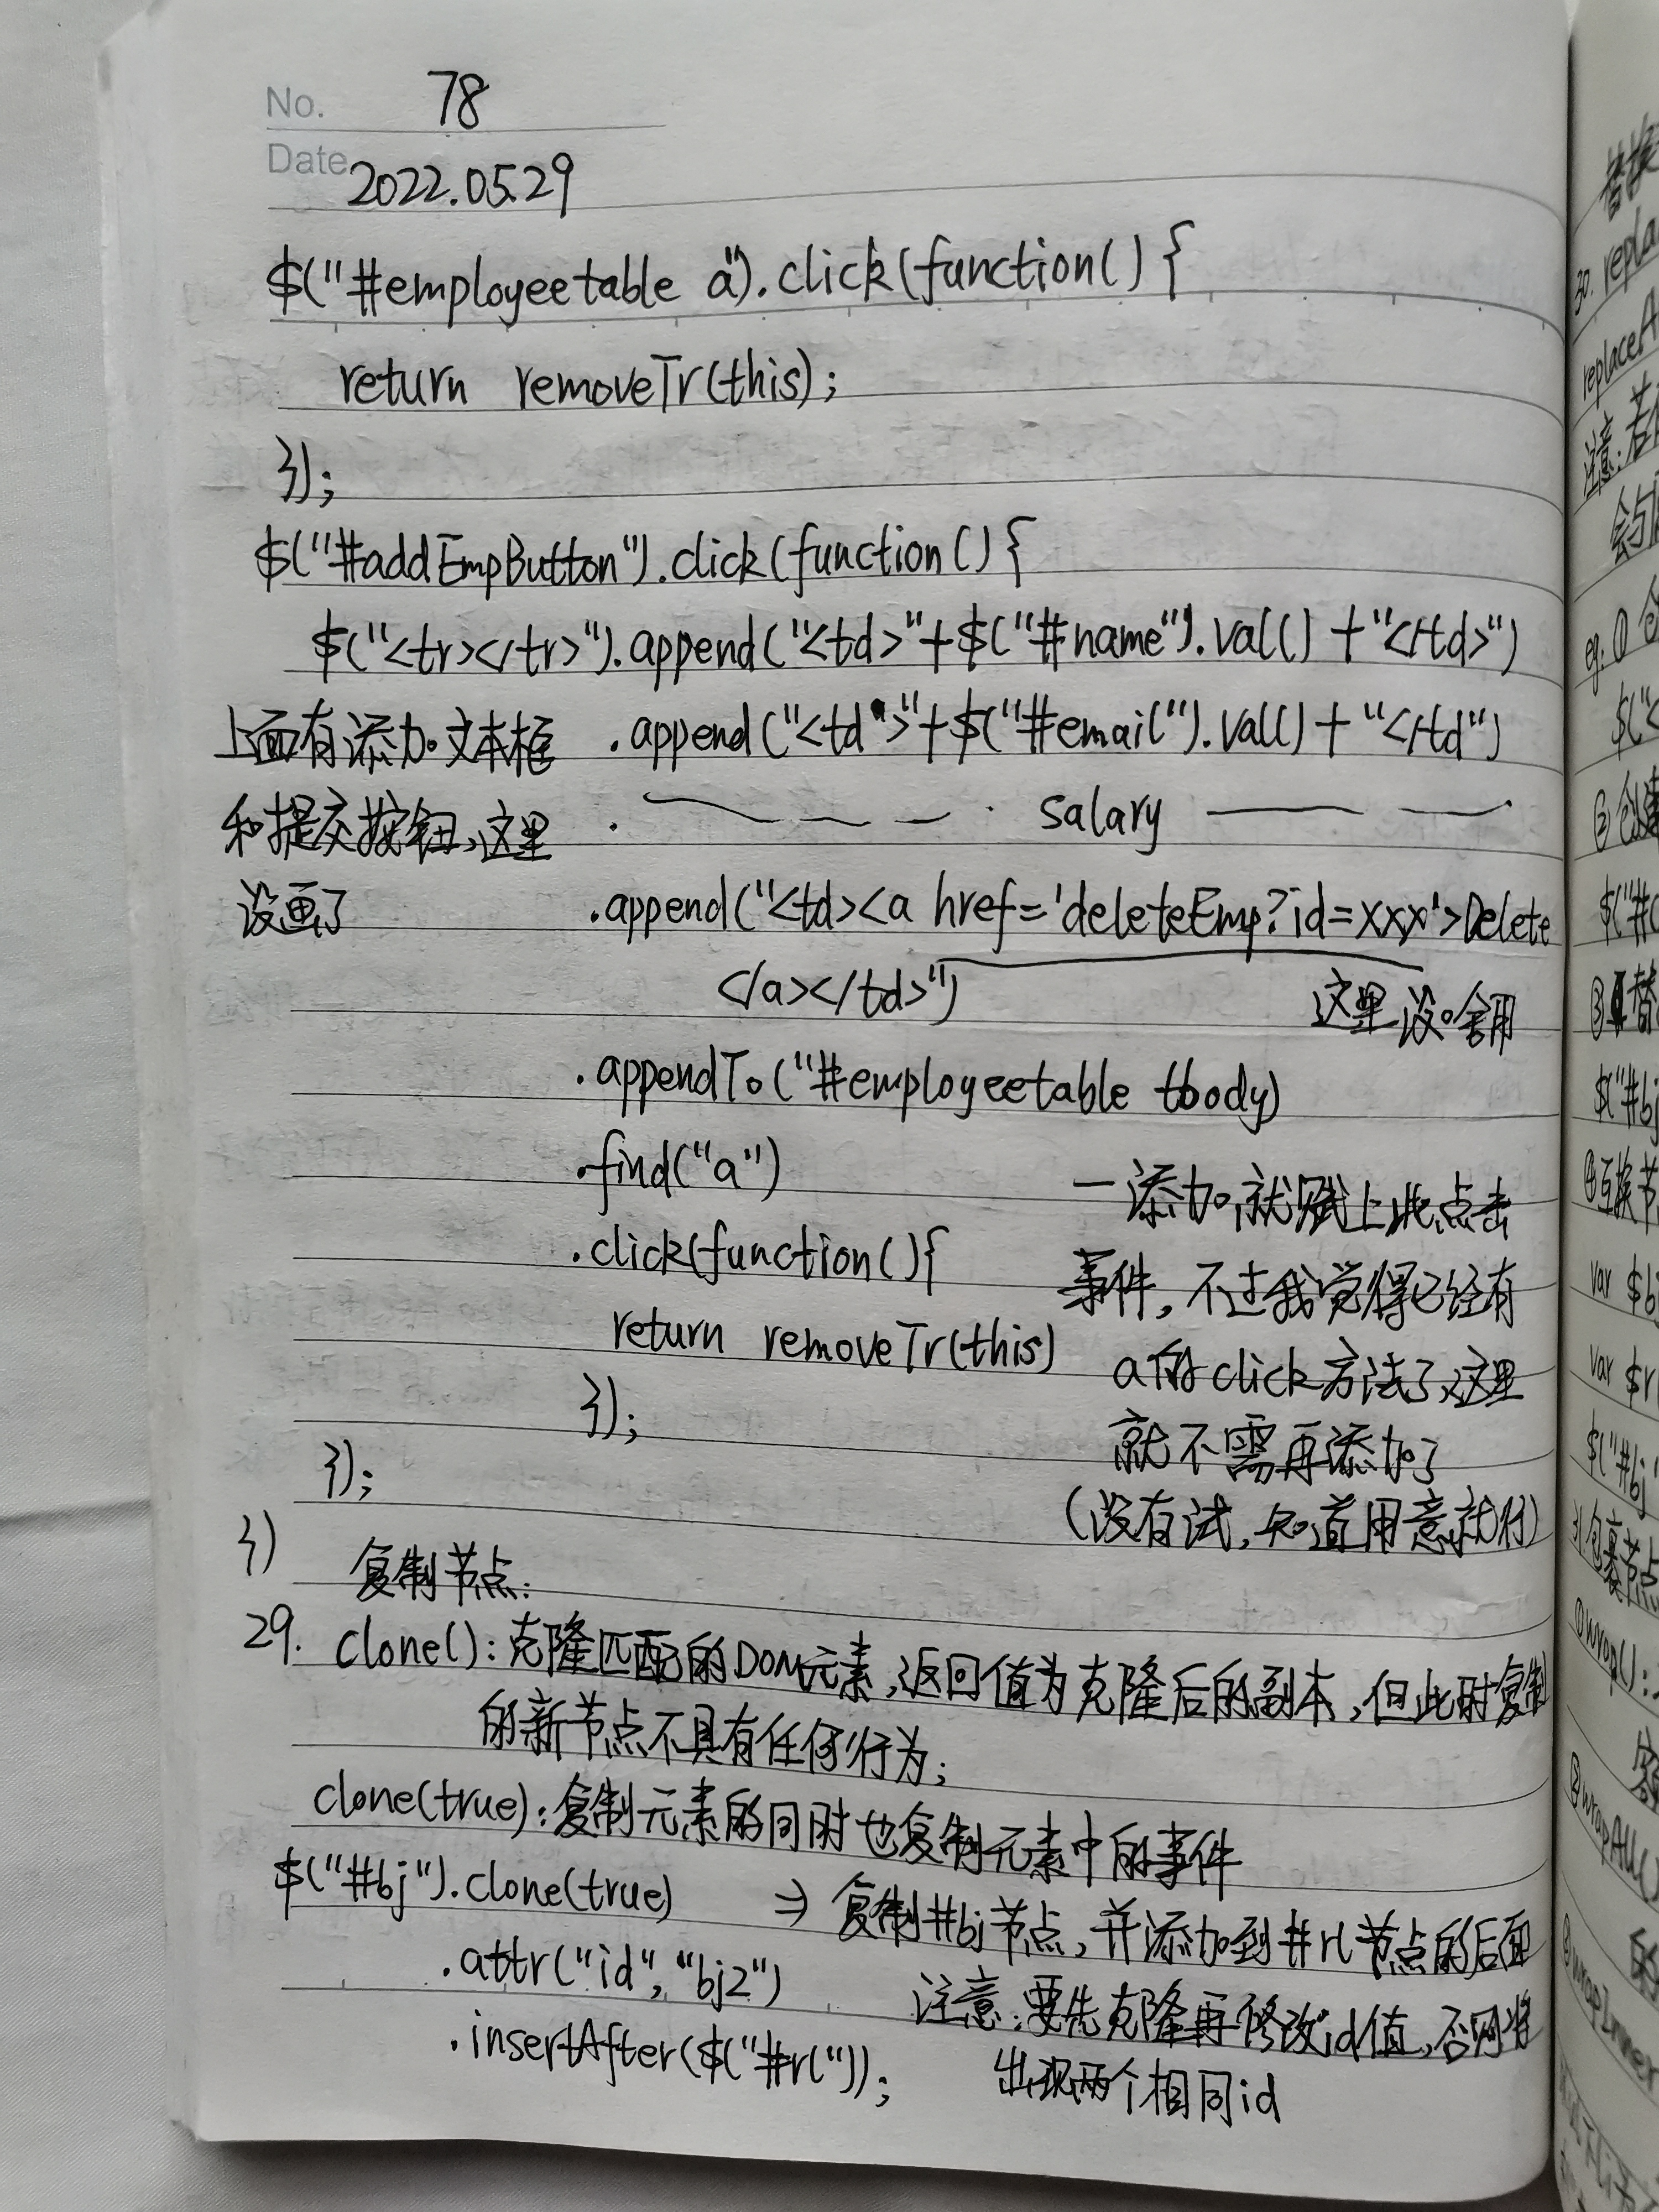 No. 78
Date 2022.05.29
$("#employeetable a").click(function() {
return removeTr(this);
});
$("#addEmpButton").click(function() {
$("<tr></tr>").append("<td>"+$("#name").val() + "</td>")
上面有添加文本框 .append("<td>"+$("#email").val() + "</td")
和提交按钮,这里 . salary
没画了 .append("<td><a href='deleteEmp?id=xxx'>Delete
</a></td>") 这里没啥用
.appendTo("#employeetable tbody)
.find("a") 一添加就赋上此点击
.click(function(){ 事件,不过我觉得已经有
return removeTr(this) a的click方法了,这里
}); 就不需再添加了
}); (没有试,知道用意就行)
}) 复制节点:
29. clone():克隆匹配的DOM元素,返回值为克隆后的副本,但此时复制
的新节点不具有任何行为;
clone(true):复制元素的同时也复制元素中的事件
$("#bj").clone(true) ⇒ 复制#bj节点,并添加到#rl节点的后面
.attr("id","bj2") 注意:要先克隆再修改id值,否则将
.insertAfter($("#rl")); 出现两个相同id
替换
30. repla
replaceA
注意:若
会
eg. ①
$("<
② 创建
$("#
③ 替
$("#bj
④互换节
var $b
var $r
$("#bj
31 包裹节点
①wrap():
②wrapAll()
的
③wrapInner